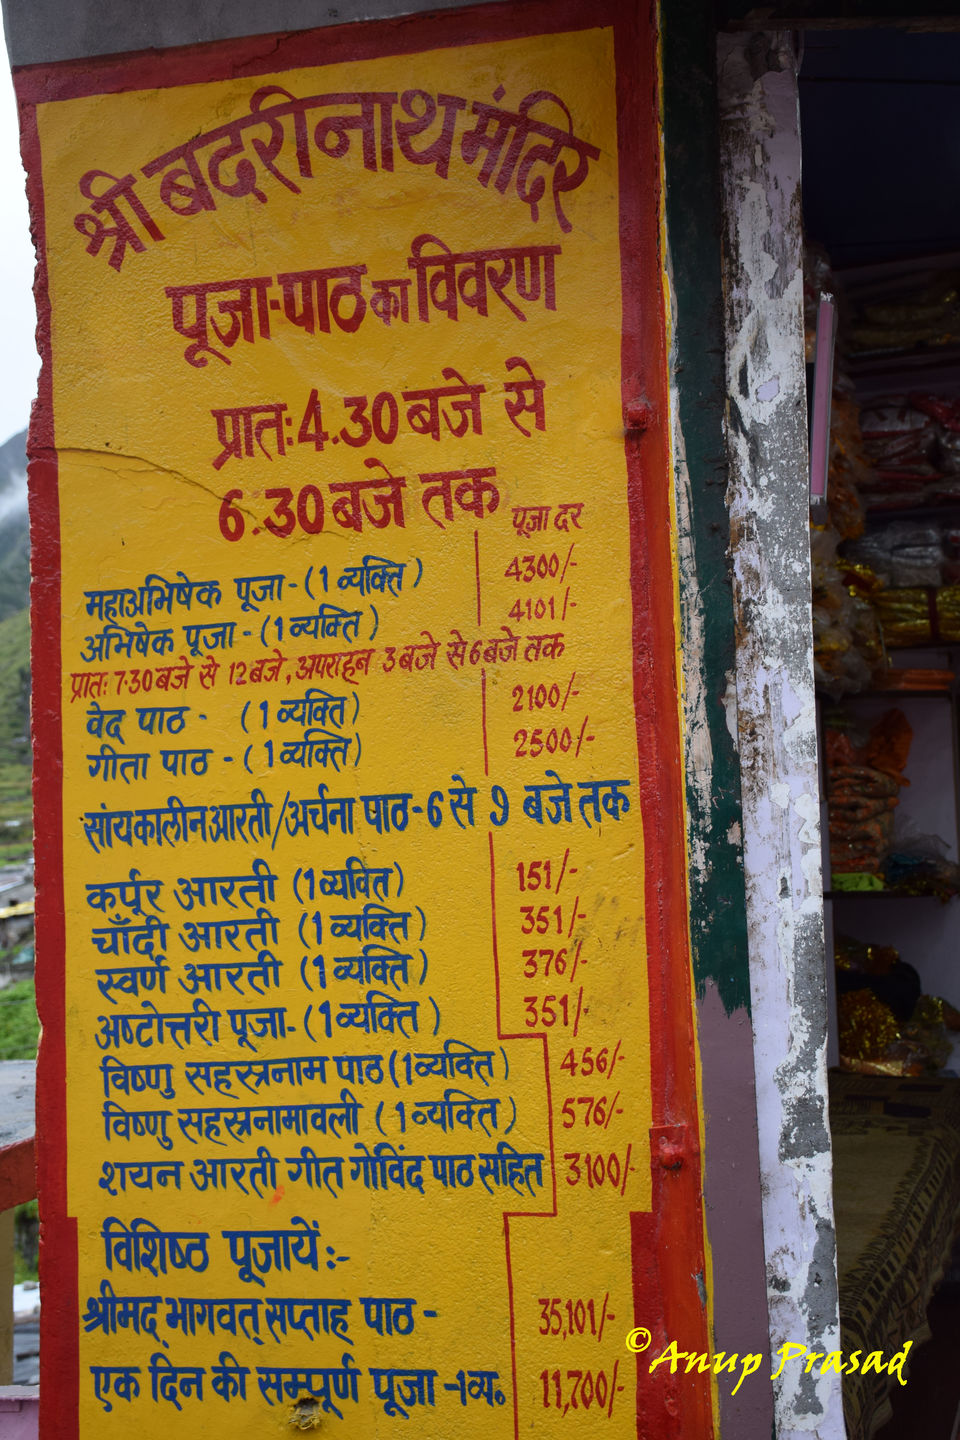 श्री बदरीनाथ मंदिर
पूजा-पाठ का विवरण
प्रातः 4.30 बजे से
6:30 बजे तक
पूजा दर
महाअभिषेक पूजा - (1 व्यक्ति) 4300/-
अभिषेक पूजा - (1 व्यक्ति) 4101/-
प्रातः 7.30 बजे से 12 बजे, अपराहन 3 बजे से 6 बजे तक
वेद पाठ - (1 व्यक्ति) 2100/-
गीता पाठ - (1 व्यक्ति) 2500/-
सांयकालीन आरती/अर्चना पाठ - 6 से 9 बजे तक
कर्पूर आरती (1 व्यक्ति) 151/-
चाँदी आरती (1 व्यक्ति) 351/-
स्वर्ण आरती (1 व्यक्ति) 376/-
अष्टोत्तरी पूजा - (1 व्यक्ति) 351/-
विष्णु सहस्त्रनाम पाठ (1 व्यक्ति) 456/-
विष्णु सहस्त्रनामावली (1 व्यक्ति) 576/-
शयन आरती गीत गोविंद पाठ सहित 3100/-
विशिष्ठ पूजायें :-
श्रीमद् भागवत् सप्ताह पाठ - 35,101/-
एक दिन की सम्पूर्ण पूजा - 1व्य. 11,700/-
© Anup Prasad